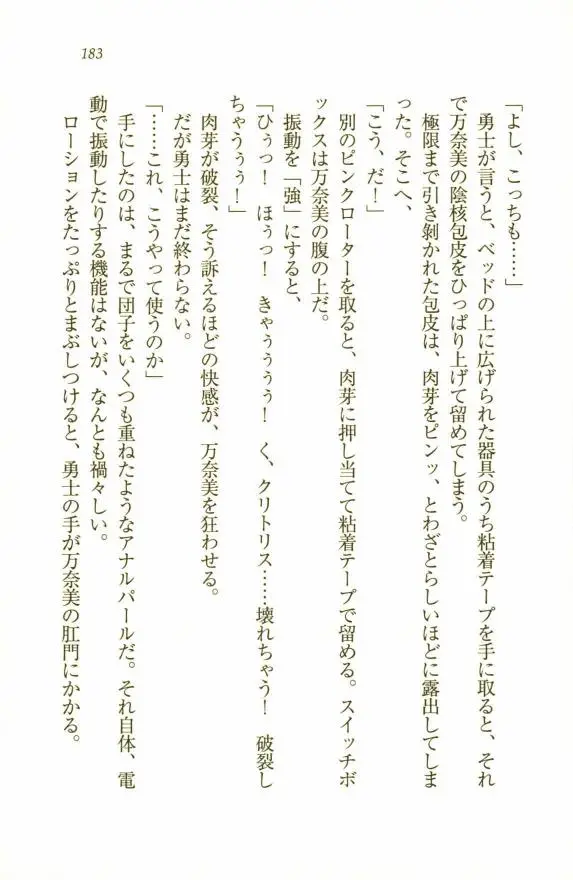 183
「よし、こっちも……」
勇士が言うと、ベッドの上に広げられた器具のうち粘着テープを手に取ると、それ
で万奈美の陰核包皮をひっぱり上げて留めてしまう。
極限まで引き剝かれた包皮は、肉芽をピンッ、とわざとらしいほどに露出してしま
った。そこへ、
「こう、だ！」
別のピンクローターを取ると、肉芽に押し当てて粘着テープで留める。スイッチボ
ックスは万奈美の腹の上だ。
振動を「強」にすると、
「ひぅっ！　ほぅっ！　きゃぅぅぅぅ！　く、クリトリス……壊れちゃう！　破裂し
ちゃうぅぅ！」
肉芽が破裂、そう訴えるほどの快感が、万奈美を狂わせる。
だが勇士はまだ終わらない。
「……これ、こうやって使うのか」
手にしたのは、まるで団子をいくつも重ねたようなアナルパールだ。それ自体、電
動で振動したりする機能はないが、なんとも禍々しい。
ローションをたっぷりとまぶしつけると、勇士の手が万奈美の肛門にかかる。